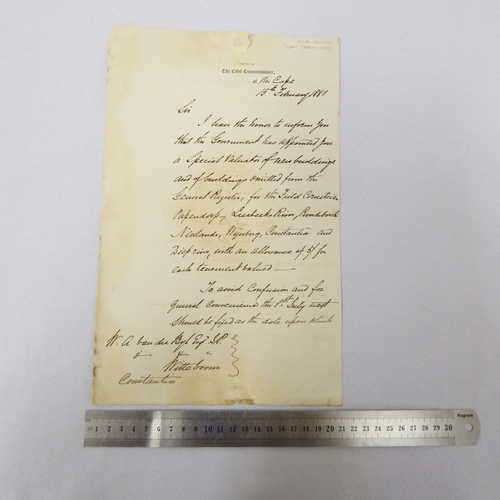 The Civil Commissioner,
Cape
15th February 1881
Sir
I have the honor to inform you
that the Government has appointed you
a Special Valuator of new buildings
and of buildings omitted from the
General Register, for the Field Cornetcies
Papendorp, Liesbeek River, Rondebosch
Newlands, Wynberg, Constantia and
Diep river, with an allowance of 5/ for
each tenement valued —
To avoid Confusion and for
general convenience the 1st July next
should be fixed as the date upon which
W. A. van der Byl Esqr J.P.
Wittebroom
Constantia
1 2 3 4 5 6 7 8 9 10 11 12 13 14 15 16 17 18 19 20 21 22 23 24 25 26 27 28 29 30